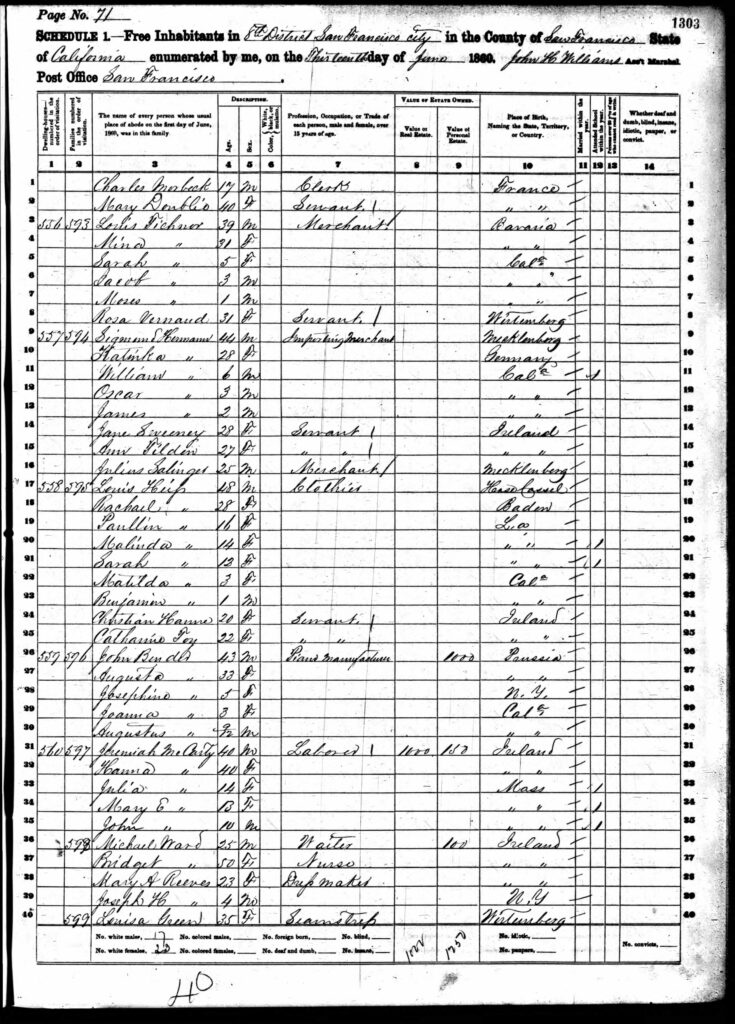 Page No. 71
1303
SCHEDULE 1.—Free Inhabitants in 8th District San Francisco city in the County of San Francisco State
of California enumerated by me, on the Thirteenth day of June 1860. John H Williams Ass't Marshal.
Post Office San Francisco.
DESCRIPTION. VALUE OF ESTATE OWNED.
Dwelling-houses—numbered in the order of visitation.
Families numbered in the order of visitation.
The name of every person whose usual place of abode on the first day of June, 1860, was in this family.
Age.
Sex.
Color, White, black, or mulatto.
Profession, Occupation, or Trade of each person, male and female, over 15 years of age.
Value of Real Estate.
Value of Personal Estate.
Place of Birth, Naming the State, Territory, or Country.
Married within the year.
Attended School within the year.
Whether deaf and dumb, blind, insane, idiotic, pauper, or convict.
1 2 3 4 5 6 7 8 9 10 11 12 13 14
1 Charles Morbeck 17 M Clerk France 1
2 Mary Doublio 40 F Servant / " " 2
3 556 593 Louis Tichnor 39 M Merchant / Bavaria 3
4 Mina " 31 F " " 4
5 Sarah " 5 F Cala 5
6 Jacob " 3 M " " 6
7 Moses " 1 M " " 7
8 Rosa Vernaud 31 F Servant / Wirtemberg 8
9 557 594 Sigmond Hermann 44 M Importing Merchant Mecklenberg 9
10 Katinka " 28 F Germany 10
11 William " 6 M Cala 1 11
12 Oscar " 3 M " " 12
13 James " 2 M " " 13
14 Jane Sweeney 28 F Servant / Ireland 14
15 Ann Tilden 27 F " " / " " 15
16 Julius Salinger 25 M Merchant / Mecklenberg 16
17 558 595 Louis Heip 48 M Clothier Hesse Cassel 17
18 Rachael " 28 F Baden 18
19 Paullin " 16 F La 19
20 Malinda " 14 F " " 1 20
21 Sarah " 12 F " " 1 21
22 Matilda " 3 F Cala 22
23 Benjamin " 1 M " " 23
24 Christian Hanne 20 F Servant / Ireland 24
25 Catharine Foy 22 F " " / " " 25
26 559 596 John Bender 43 M Piano Manufacturer 1000 Prussia 26
27 Augusta " 33 F " " 27
28 Josephine " 5 F N.Y. 28
29 Joanna " 3 F Cala 29
30 Augustus " M " " 30
31 560 597 Jeremiah McCarty 40 M Laborer / 1000 150 Ireland 31
32 Hanna " 40 F " " 32
33 Julia " 14 F Mass 1 33
34 Mary E " 13 F " " 1 34
35 John " 10 M " " 1 35
36 598 Michael Ward 25 M Waiter 100 Ireland 36
37 Bridget " 50 F Nurse " " 37
38 Mary A Reeves 23 F Dress maker " " 38
39 Joseph H " 4 M N.Y 39
40 599 Louisa Green 35 F Seamstress Wirtemberg 40
No. white males, 17 No. colored males, No. foreign born, No. blind, 1000 1250 No. idiotic,
No. white females, 23 No. colored females, No. deaf and dumb, No. insane, No. paupers, No. convicts,
40